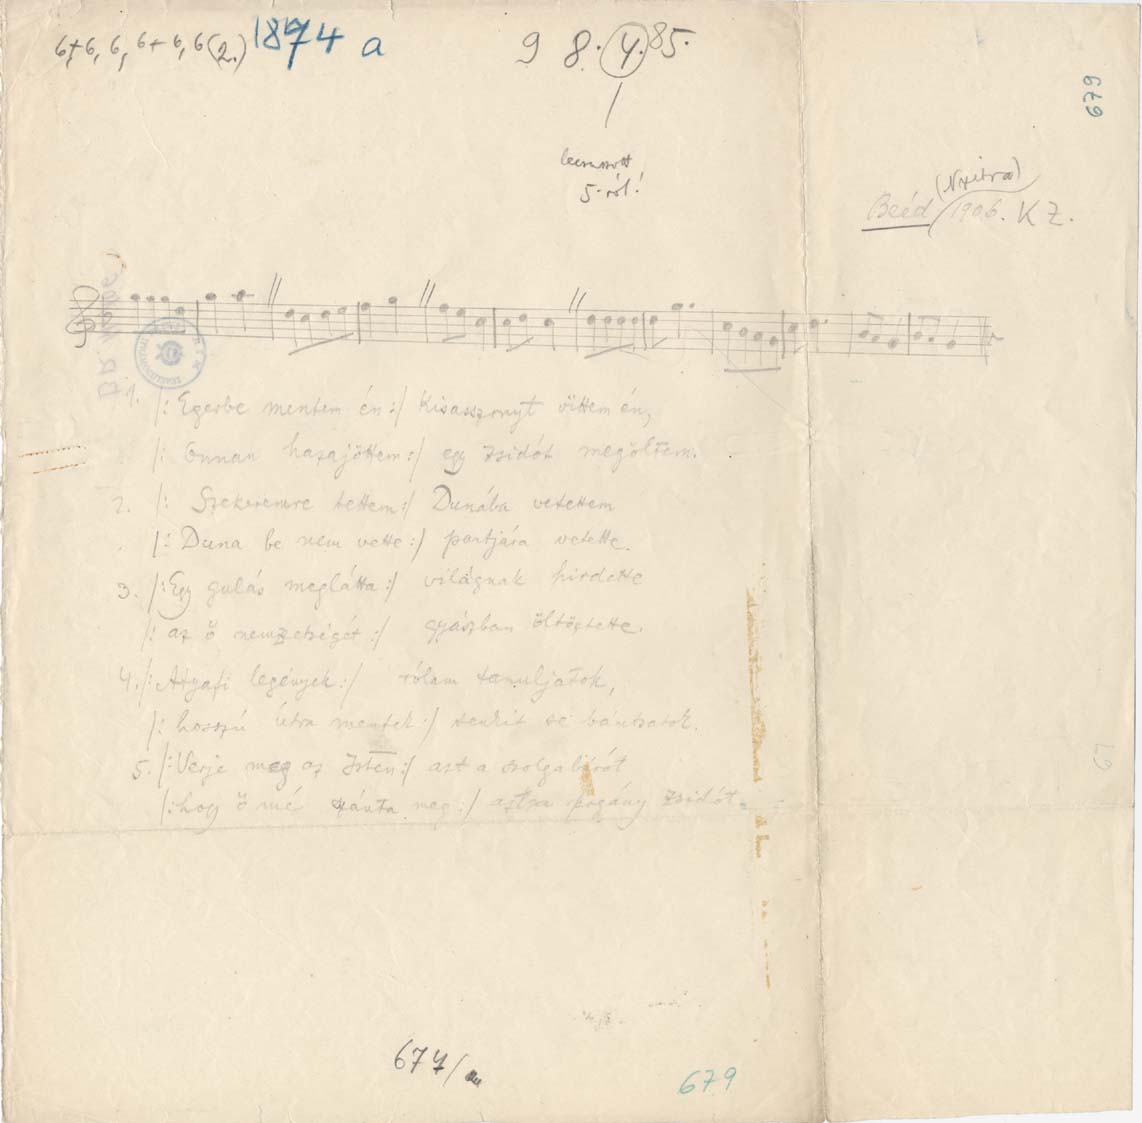 6+6, 6, 6+6, 6 (2.) 1874 a
9 8. (4.) 85.
679
5-ról!
(Nyitra)
Beéd 1906. K Z.
1. /: Egerbe mentem én :/ Kisasszonyt vittem én,
/: Onnan hazajöttem :/ egy zsidót megöltem.
2. /: Szekeremre tettem :/ Dunába vetettem
/: Duna be nem vette :/ partjára vetette.
3. /: Egy gulás meglátta :/ világnak hirdette
/: az ő nemzetségét :/ gyászban öltöztette.
4. /: Atyafi legények :/ rólam tanuljatok,
/: hosszú útra mentek :/ senkit se bántsatok.
5. /: Verje meg az Isten :/ azt a szolgabírót
/: hogy ő mé szánta meg :/ asztra pogány zsidót
677/
679